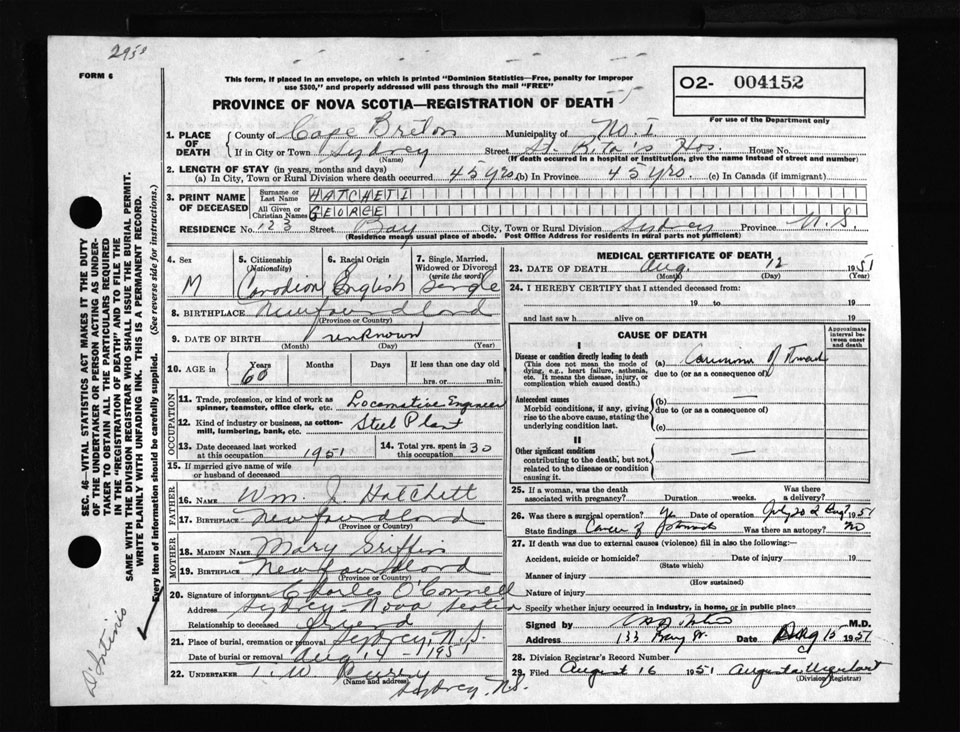 295⁰
FORM 6
This form, if placed in an envelope, on which is printed "Dominion Statistics—Free, penalty for improper
use $300," and properly addressed will pass through the mail "FREE"
O2- 004152
For use of the Department only
PROVINCE OF NOVA SCOTIA—REGISTRATION OF DEATH
1. PLACE OF DEATH
County of Cape Breton Municipality of No. 1
If in City or Town Sydney Street St. Rita's Hos. House No.
(Name) (If death occurred in a hospital or institution, give the name instead of street and number)
2. LENGTH OF STAY (in years, months and days)
(a) In City, Town or Rural Division where death occurred 45 yrs. (b) In Province 45 yrs. (c) In Canada (if immigrant)
3. PRINT NAME OF DECEASED
Surname or Last Name HATCHETT
All Given or Christian Names GEORGE
RESIDENCE No. 123 Street Bay City, Town or Rural Division Sydney Province N.S.
(Residence means usual place of abode. Post Office Address for residents in rural parts not sufficient)
4. Sex M
5. Citizenship (Nationality) Canadian
6. Racial Origin English
7. Single, Married, Widowed or Divorced (write the word) Single
8. BIRTHPLACE Newfoundland
(Province or Country)
9. DATE OF BIRTH unknown
(Month) (Day) (Year)
10. AGE in Years 60 Months Days If less than one day old
hrs. or min.
OCCUPATION
11. Trade, profession, or kind of work as
spinner, teamster, office clerk, etc. Locomotive Engineer
12. Kind of industry or business, as cotton-
mill, lumbering, bank, etc. Steel Plant
13. Date deceased last worked
at this occupation 1951
14. Total yrs. spent in
this occupation 30
15. If married give name of wife
or husband of deceased
FATHER
16. NAME Wm. J. Hatchett
17. BIRTHPLACE Newfoundland
(Province or Country)
MOTHER
18. MAIDEN NAME Mary Griffin
19. BIRTHPLACE Newfoundland
(Province or Country)
20. Signature of informant Charles O'Connell
Address Sydney Nova Scotia
Relationship to deceased Friend
21. Place of burial, cremation or removal Sydney, N.S.
Date of burial or removal Aug 14 - 1951
22. UNDERTAKER T. W. Curry
(Name and address)
Sydney, N.S.
MEDICAL CERTIFICATE OF DEATH
23. DATE OF DEATH Aug. 12 1951
(Month) (Day) (Year)
24. I HEREBY CERTIFY that I attended deceased from:
19 to 19
and last saw h alive on 19
CAUSE OF DEATH
Approximate interval between onset and death
I
Disease or condition directly leading to death
(This does not mean the mode of
dying, e.g., heart failure, asthenia,
etc. It means the disease, injury, or
complication which caused death.)
(a) Carcinoma of Stomach
due to (or as a consequence of)
Antecedent causes
Morbid conditions, if any, giving
rise to the above cause, stating the
underlying condition last.
(b) —
due to (or as a consequence of)
(c)
II
Other significant conditions
contributing to the death, but not
related to the disease or condition
causing it.
—
25. If a woman, was the death
associated with pregnancy? Duration weeks. Was there
a delivery?
26. Was there surgical operation? Yes Date of operation July 20 & Aug 7 1951
State findings Cancer of Stomach Was there an autopsy? No
27. If death was due to external causes (violence) fill in also the following:—
Accident, suicide or homicide? Date of injury 19
(State which)
Manner of injury
(How sustained)
Nature of injury
Specify whether injury occurred in industry, in home, or in public place
Signed by M.D.
Address 133 Date Aug 15 1951
28. Division Registrar's Record Number
29. Filed August 16 1951 Augusta Urquhart
(Division Registrar)
SEC. 46—VITAL STATISTICS ACT MAKES IT THE DUTY
OF THE UNDERTAKER OR PERSON ACTING AS UNDER-
TAKER TO OBTAIN ALL THE PARTICULARS REQUIRED
IN THE "REGISTRATION OF DEATH" AND TO FILE THE
SAME WITH THE DIVISION REGISTRAR WHO SHALL ISSUE THE BURIAL PERMIT.
WRITE PLAINLY WITH UNFADING INK. THIS IS A PERMANENT RECORD.
Every item of information should be carefully supplied. (See reverse side for instructions.)